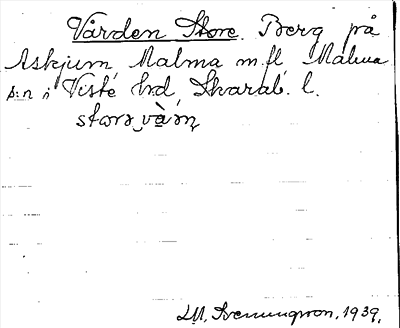 Vården Store. Berg på
Askjum Malma m.fl. Malma
s:n i Viste hd, Skarab. l.
L.M. Svenungsson, 1939.